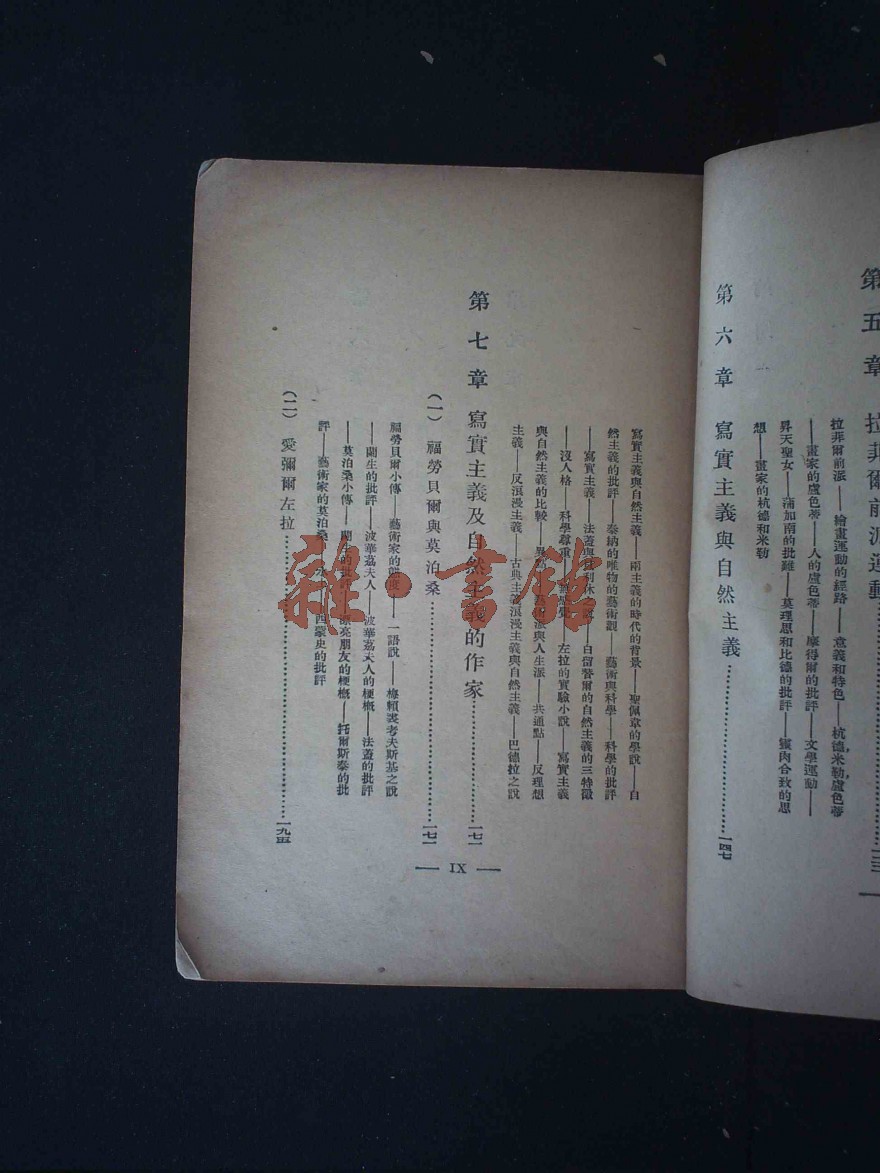 第五章 拉菲爾前派運動
拉菲爾前派——繪畫運動的經路——意義和特色——杭德,米勒,盧色蒂
——畫家的盧色蒂——人的盧色蒂——摩得爾的批評——文學運動——
昇天聖女——蒲加南的批難——莫理思和比德的批評——靈肉合致的思
想——畫家的杭德和米勒
第六章 寫實主義與自然主義…………一四七
寫實主義與自然主義——兩主義的時代的背景——聖佩韋的學說——自
然主義的批評——泰納的唯物的藝術觀——藝術與科學——科學的批評
——寫實主義——法蓋與 利休之說——白留諦爾的自然主義的三特徵
——沒人格——科學尊重——左拉的實驗小說——寫實主義
與自然主義的比較——異點——藝術派與人生派——共通點——反理想
主義——反浪漫主義——古典主義浪漫主義與自然主義——巴德拉之說
第七章 寫實主義及自然主義的作家…………一七一
(一) 福勞貝爾與莫泊桑…………一七一
福勞貝爾小傳——藝術家的態度——一語說——梅賴裘考夫斯基之說
——蘭生的批評——波華荔夫人——波華荔夫人的梗概——法蓋的批評
——莫泊桑小傳——蘭生的批評——漂亮朋友的梗概——托爾斯泰的批
評——藝術家的莫泊桑——水 ——西蒙史的批評
(二) 愛彌爾左拉…………一九五
— IX —
雜·書館